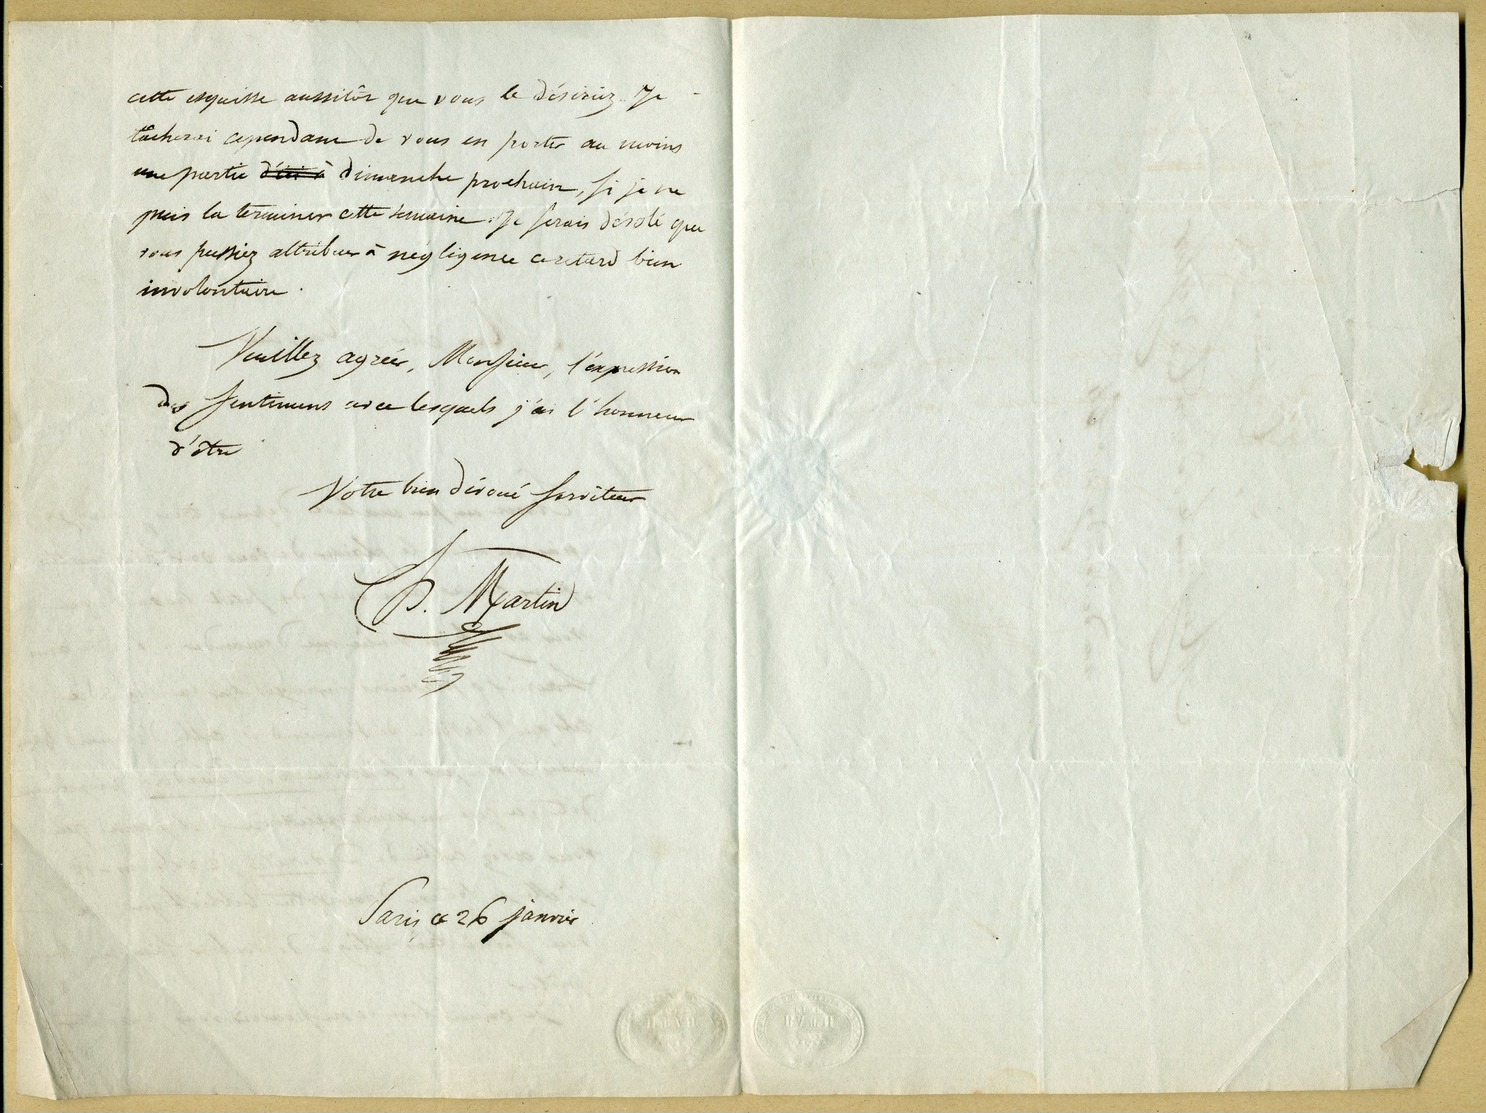 cette esquisse aussitôt que vous le désiriez. Je
tâcherai cependant de vous en porter au moins
une partie dimanche prochain, si je ne
puis la terminer cette semaine. Je serais désolé que
vous pussiez attribuer à négligence ce retard bien
involontaire.
Veuillez agréer, Monsieur, l'expression
des sentimens avec lesquels j'ai l'honneur
d'être
Votre bien dévoué serviteur
Martin
Paris ce 26 janvier